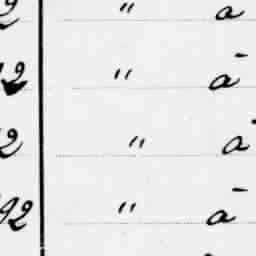 2 " a
12 " ā
2 " ā
92 " ā